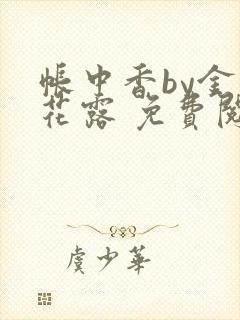 帳中香by金
花露 免費閱
虞少華